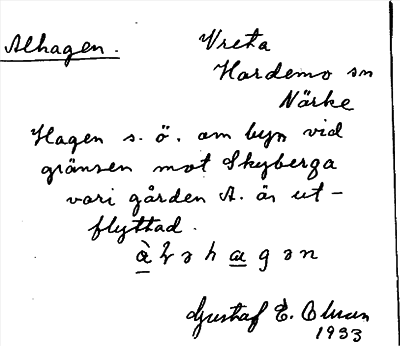 Alhagen.
Vreta
Hardemo sn
Närke
Hagen s. ö. om byn vid
gränsen mot Skyberga
vari gården A. är ut-
flyttad.
Gustaf E. Olsson
1933